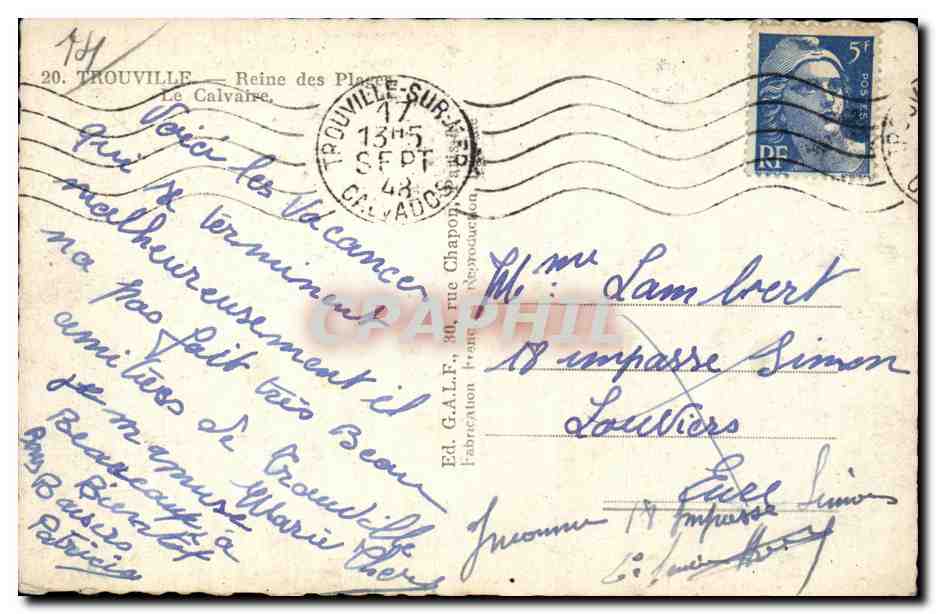 74
20. TROUVILLE. — Reine des Plages
Le Calvaire.
Voici les Vacances
qui se terminent
malheureusement il
na pas fait très Beau
amitiées de Trouville
je m'amuse Marie Thers
Beaucoup a
Bientot
Bons Baisers
Patricia
TROUVILLE-SUR-MER
17
13H5
SEPT
48
CALVADOS
5F
POSTES
RF
Ed. G.A.L.F., 30, rue Chapon, Paris
Fabrication Franç. Reproduction
CPAPHIL
Mme: Lambert
18 impasse Simon
Louviers
Eure
Inconnue 18 Impasse Simon